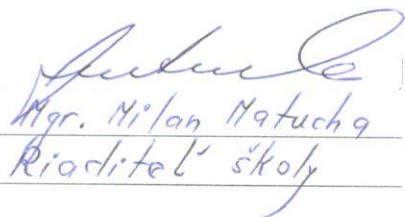 Mgr. Milan Matucha
Riaditeľ školy